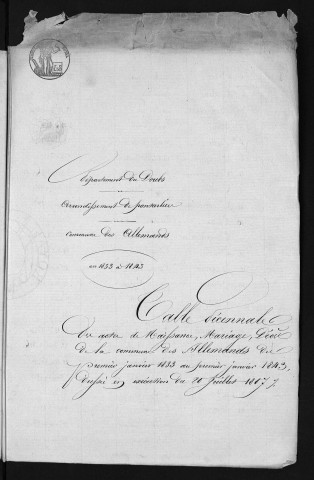 Département du Doubs
Arrondissement de pontarlier
Commune des Allemands
an 1833 à 1843
Table décennale
des actes de Naissance, Mariage, Décès
de la commune des Allemands du
premier janvier 1833 au premier janvier 1843,
dressée en exécution du 20 juillet 1807